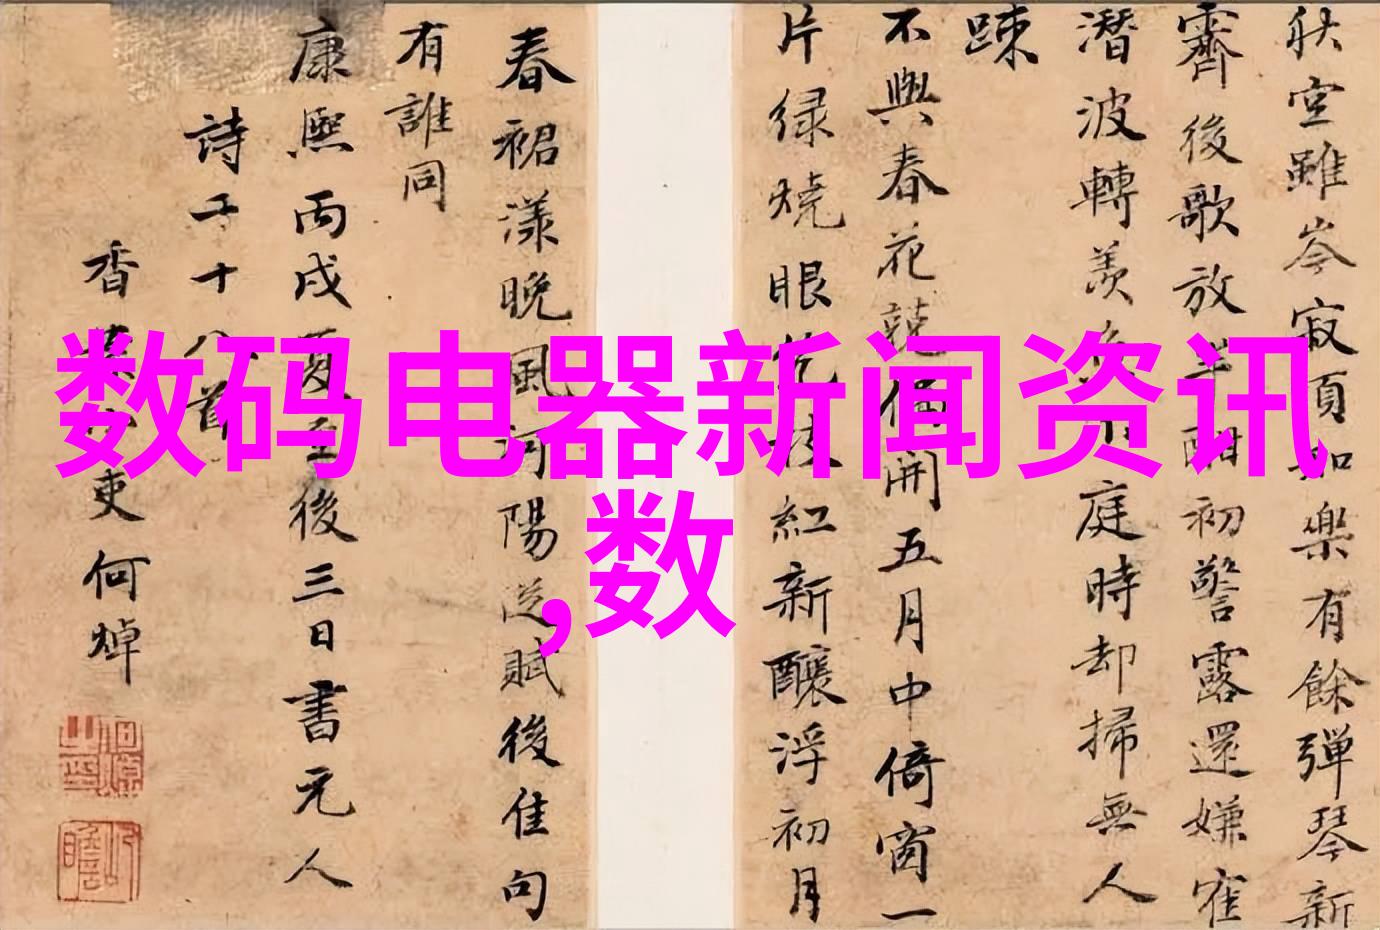 秋空雖岑寂頁如樂有餘彈琴新
霽後歌放半酣初警露還嫌窄
潛波轉羨魚 庭時却掃無人
踈
不與春花競 開五月中倚窗一
片绿燒眼 枝紅新釀浮初月
春裙漾晚風河陽送賦後佳句
有誰同
康熙丙戌夏至後三日書元人
詩二十八首
香 吏何焯
数码电器新闻资讯
,数